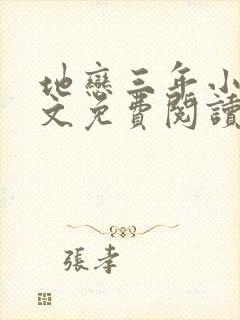 地戀三年小
文免費閱讀
張孝